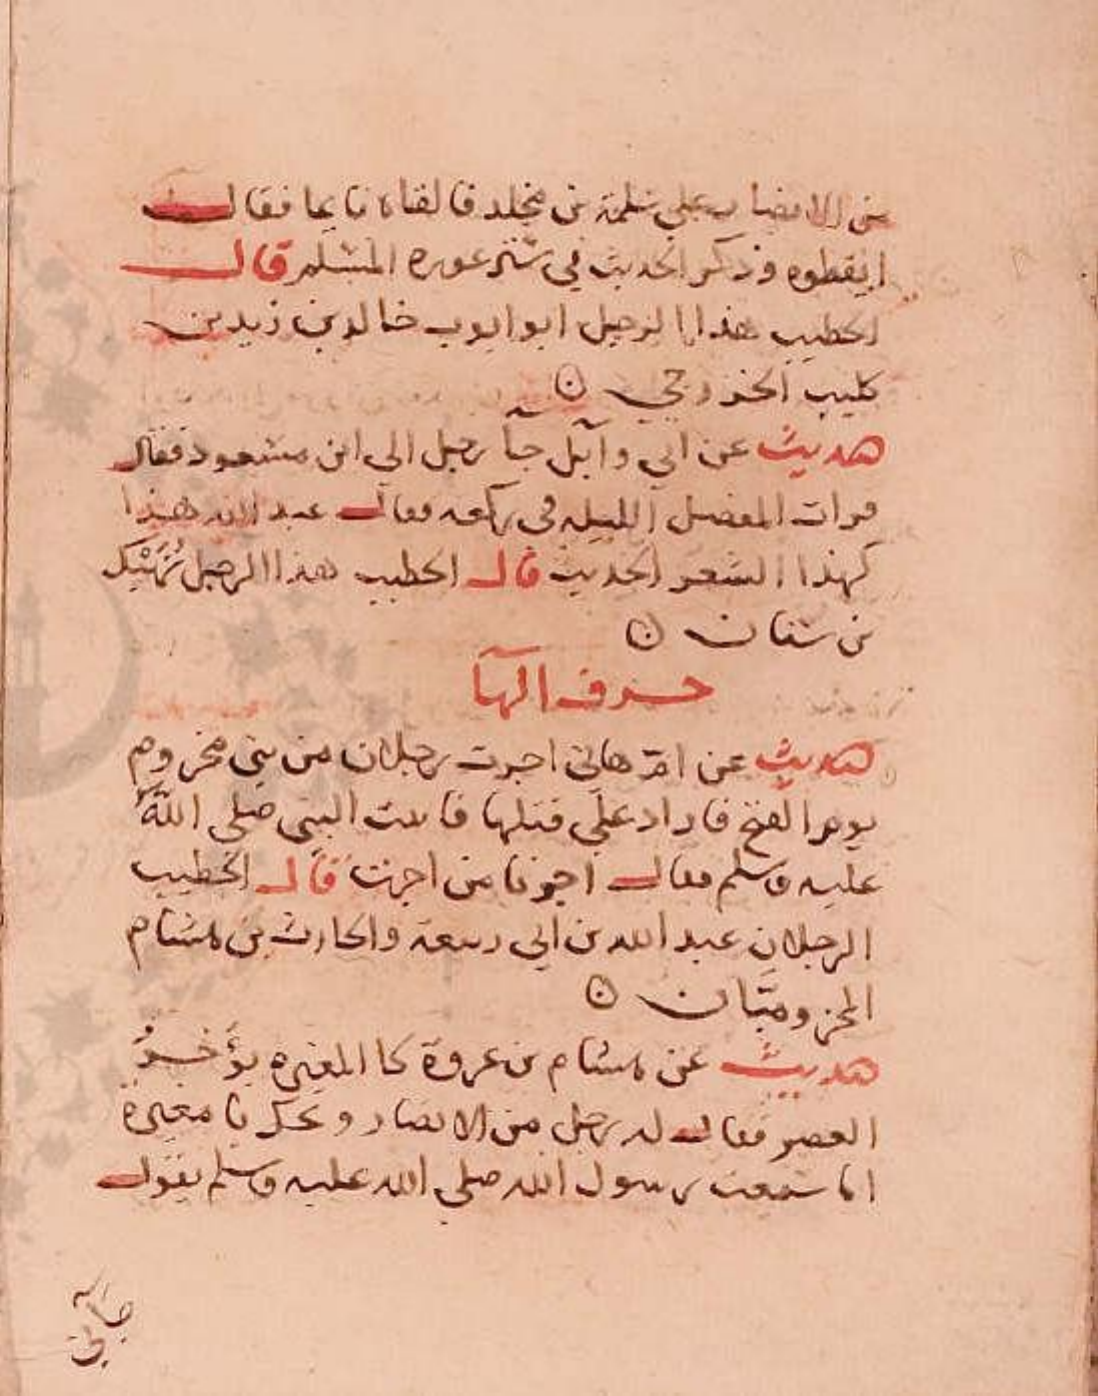 من الانصار على مسلمة بن مخلد فالفاه نايما فقال
ايقظوه وذكر الحديث في ستر عوره المسلم قال
الخطيب هذا الرجل ابو ايوب خالد بن زيد بن
كليب الخزرجي ن
حديث عن ابي وآيل جآ رجل الي ابن مسعود فقال
قرات المفصل الليله في ركعه فقال عبد الله هذا
كهذا الشعر الحديث قال الخطيب هذا الرجل نُهَيْك
بن سنان ن
حرف الهآ
حديث عن ام هاني اجرت رجلان من بني مخزوم
يوم الفتح فاراد علي قتلها فاتت النبي صلي الله
عليه وسلم فقال اجرنا من اجرت قال الخطيب
الرجلان عبد الله بن ابي ربيعة والحارث بن هشام
المخزوميان ن
حديث عن هشام بن عروة كا المغيره يؤخر
العصر فقال له رجل من الانصار ويحك يا مغيرة
اما سمعت رسول الله صلي الله عليه وسلم يقول
جآني